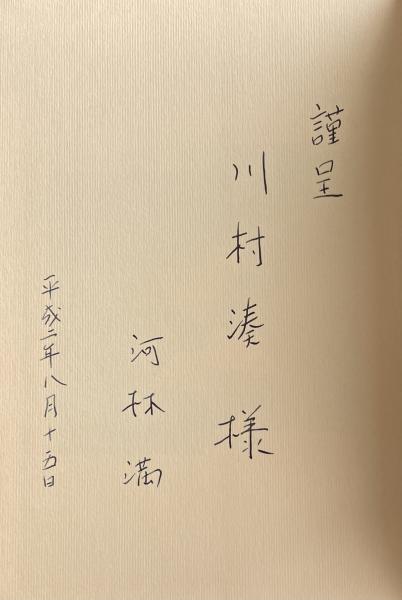 謹呈
川村湊様
河林満
平成二年八月十五日